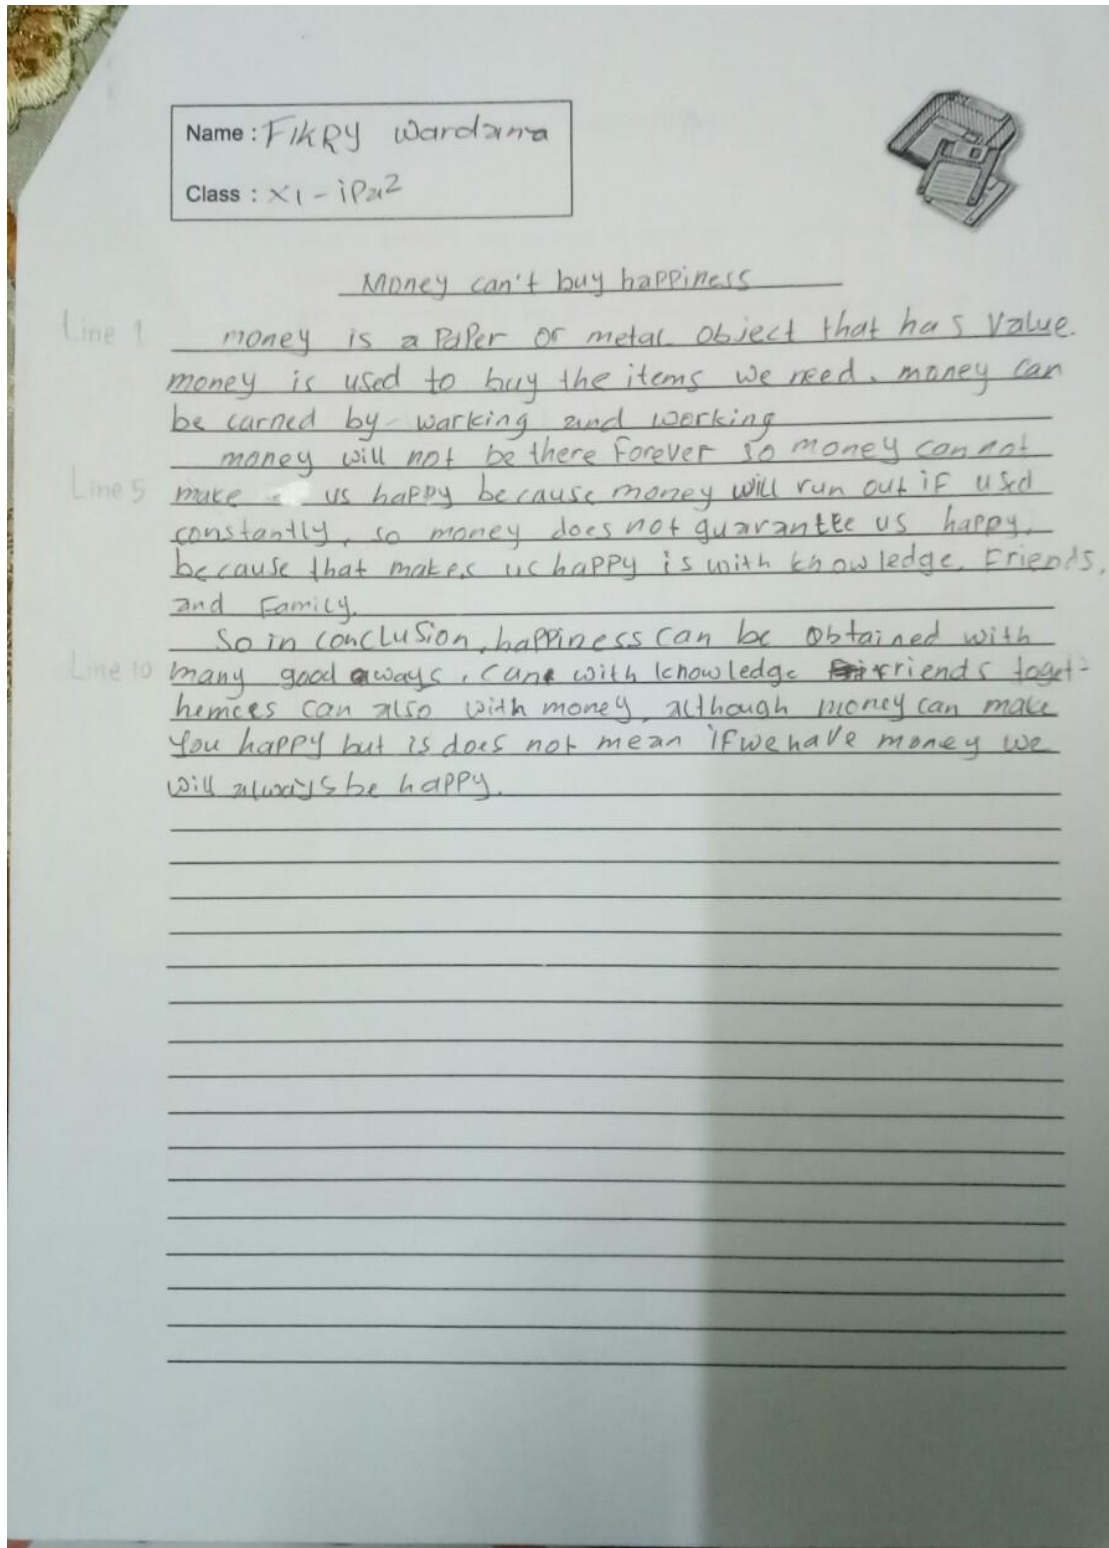 Name : FIKRY Wardana
Class : XI - iPa2
Money can't buy happiness
Line 1 money is a Paper or metal object that has Value.
money is used to buy the items we need. money can
be earned by warking and working
money will not be there Forever so money can not
Line 5 make us happy because money will run out if used
constantly, so money does not guarantee us happy,
because that makes us happy is with knowledge, Friends,
and Family.
So in conclusion, happiness can be obtained with
Line 10 many good aways, can with knowledge friends toget-
hernees can also with money, although money can make
You happy but is does not mean if we have money we
will always be happy.